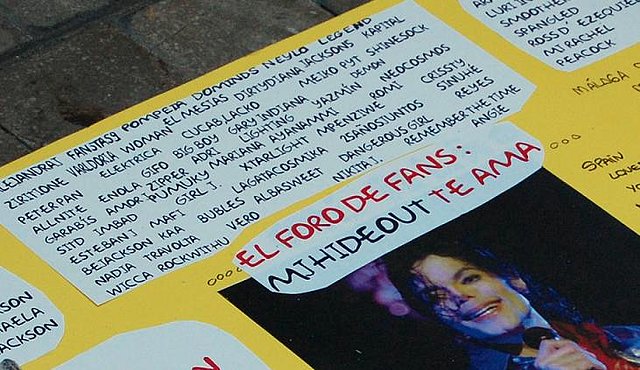 LEJANDRAT FANGTASI POMPEIA DOMINDS NEYLO LEGEND
ZIRITIONE VARLOBIA WOMAN EL MESIAS DIRTYDIANA JACKSONS KAPITAL
PETERPAN ELEKTRICA CUCABLACKO MEIKO PYT SHINESOCK
ALLNITE ENOLA GIEO BIG BOY GARY INDIANA YAZMÍN DEMON NEOCOSMOS
GARABÍS AMOR ZIPPER ADEL LIGHTING AYANAMMI ROMI CRISSTY
SITD IMBAD PUMUKY MARIANA MPENZIWE SINUHÉ
ESTEBANJ MAFI GIRL J. XTARLIGHT 25ANOSJUNTOS REYES
BEJACKSON KAA BUBLES LAGATACOSMIKA DANGEROUS GIRL REMEMBER THE TIME
NADIA TRAVOLTA VERO ALBASWEET NIKITA J. ANGIE
WICCA ROCKWITHU
EL FORO DE FANS:
MJHIDEOUT TE AMA
LURI
SMOOTHE
SPANGLED
ROSS D EZEQUIE
MJ RACHEL
PEACOCK
MÁLAGA
SPAIN
LOVE
SON
AELA
JACKSON